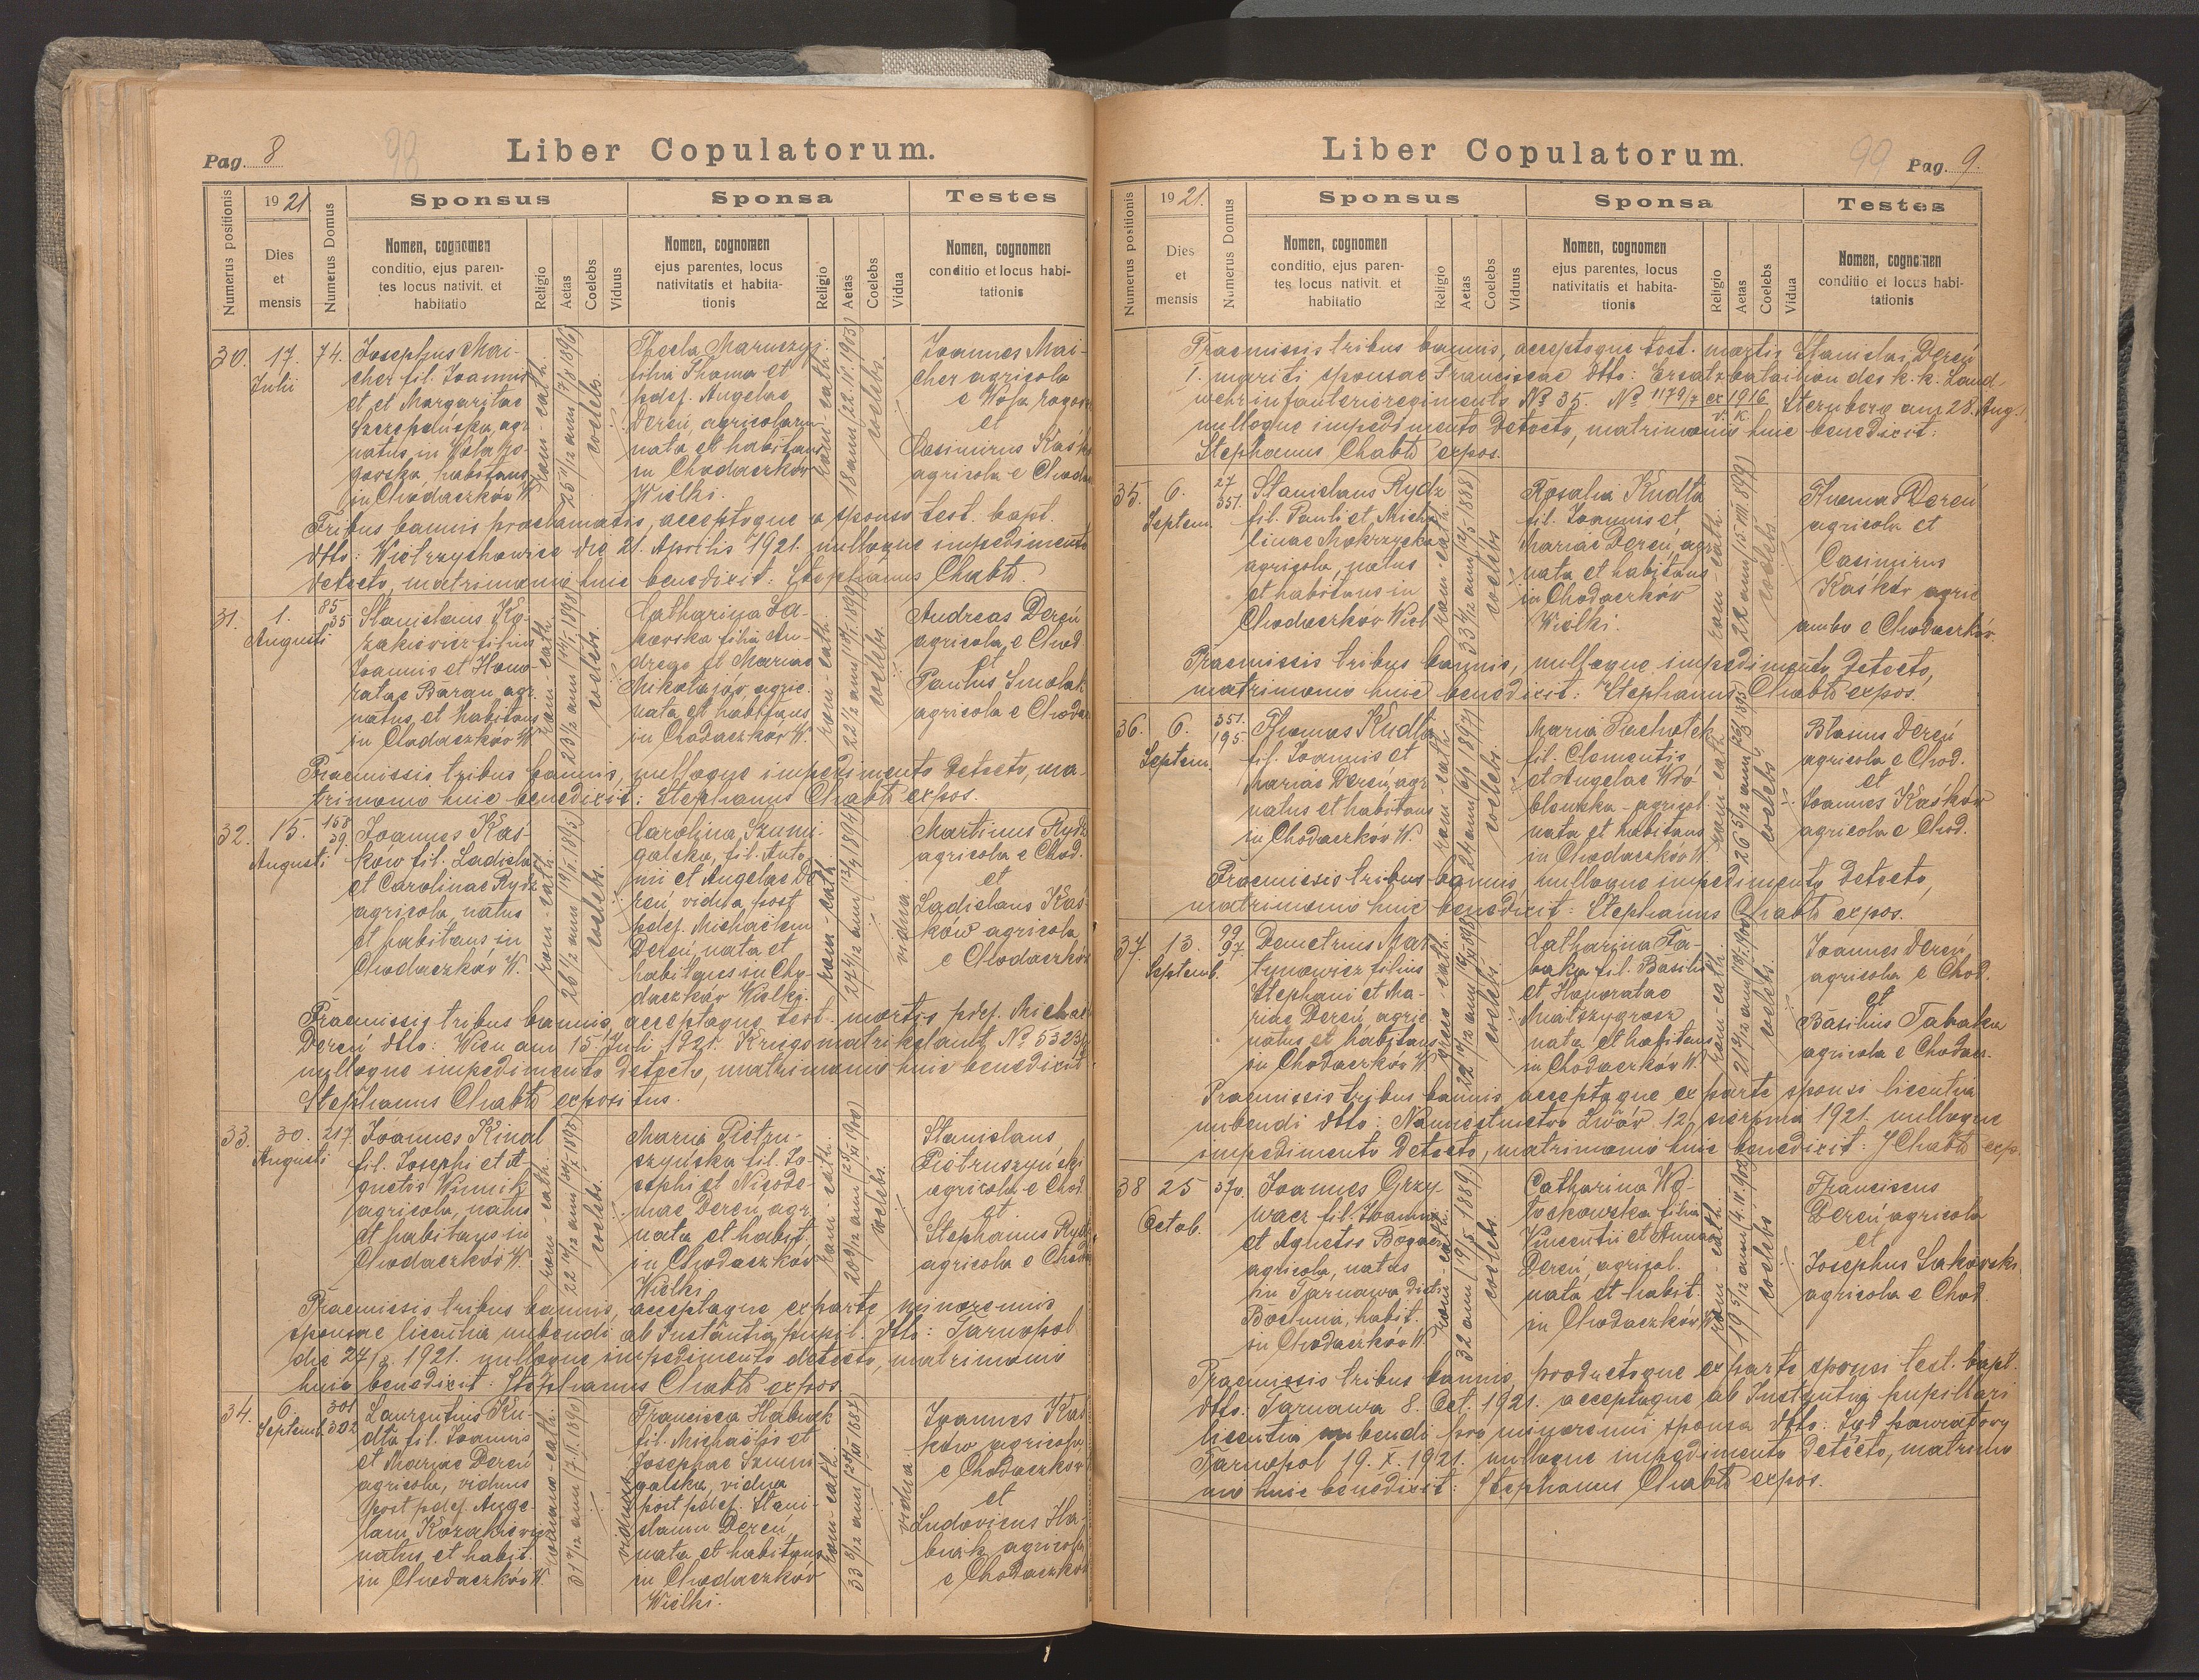 Pag. 8
98
Liber Copulatorum.
Numerus positionis
1921
Dies
et
mensis
Numerus Domus
Sponsus
Nomen, cognomen
conditio, ejus paren-
tes locus nativit. et
habitatio
Religio
Aetas
Coelebs
Viduus
Sponsa
Nomen, cognomen
ejus parentes, locus
nativitatis et habita-
tionis
Religio
Aetas
Coelebs
Vidua
Testes
Nomen, cognomen
conditio et locus habi-
tationis
30. 17. Julii
74.
Josephus Mai-
cher fil. Joannis
et Margaritae
agr.
natus in Wola Ro-
gowska, habitans
in Chodaczków W.
rom-cath.
coelebs.
Thecla
filia Thoma et
pdef. Angelae
Dereń, agricolarum
nata et habitans
in Chodaczków
Wielki.
rom-cath.
18 anni (22.II.1903)
coelebs.
Joannes Mai-
cher agricola
e Wola
et
Casimirus
agricola e
Tribus bannis proclamatis, acceptoque a sponso test. bapt.
dtto: Wietrzychowice die 21. Aprilis 1921. nulloque impedimento
detecto, matrimonio huic benedixit: Stephanus Chabło.
31. 1. Augusti
85
35
Stanislaus Ko-
zakiewicz filius
Joannis et Hono-
ratae Baran, agr.
natus et habitans
in Chodaczków W.
rom-cath.
coelebs.
Catharina Ła-
kowska filia An-
et Mariae
Mikołajów, agric.
nata et habitans
in Chodaczków W.
rom-cath.
coelebs.
Andreas Dereń
agricola e Chod.
et
Paulus Smolak
agricola e
Praemissis tribus bannis, nulloque impedimento detecto, ma-
trimonio huic benedixit: Stephanus Chabło expos.
32. 15. Augusti
39.
Joannes Kaś-
ków fil. Ladislai
et Carolinae Rydz
agricola, natus
et habitans in
Chodaczków W.
rom-cath.
coelebs.
Carolina Szumi-
galska, fil. Anto-
nii et Angelae De-
reń, vidua post
pdef. Michaelem
Dereń, nata et
habitans in Cho-
daczków Wielki.
rom-cath.
vidua.
Martinus Rydz
agricola e Chod.
et
Ladislaus Kaś-
ków agricola
e Chodaczków
Praemissis tribus bannis, acceptoque test. mortis pdef. Michael
Dereń dtto: Wien am 15 Juli 1921.
nulloque impedimento detecto, matrimonio huic benedixit
Stephanus Chabło expositus.
33. 30. Augusti
217.
Joannes Kinal
fil. Josephi et A-
gnetis
agricola, natus
et habitans in
Chodaczków W.
rom-cath.
coelebs.
Maria Pietru-
szyńska fil. Jo-
sephi et Nicode-
mae Dereń, agr.
nata et habit.
in Chodaczków
Wielki.
rom-cath.
coelebs.
Stanislaus
Pietruszyński
agricola e Chod.
et
Stephanus
agricola e
Praemissis tribus bannis, acceptaque ex parte minorennis
sponsae licentia nubendi ab Instantia pupil. dtto: Tarnopol
die 1921. nulloque impedimento detecto, matrimonio
huic benedixit: Stephanus Chabło expos.
34. 6. Septemb.
301
302
Laurentius Ku-
dła fil. Joannis
et Mariae Dereń
agricola, viduus
post pdef. Ange-
lam
natus et habit.
in Chodaczków W.
romano-cath.
viduus
Francisca Habiak
fil. Michaëlis et
Josephae Szumi-
galska, vidua
post pdef. Stani-
slaum Dereń,
nata et habitans
in Chodaczków
Wielki.
rom-cath.
vidua.
Joannes Kaś-
ków agricola
e Chodaczków
et
Ludovicus Ha-
biak agricola
e Chodaczków
Liber Copulatorum.
99
Pag. 9.
Numerus positionis
1921.
Dies
et
mensis
Numerus Domus
Sponsus
Nomen, cognomen
conditio, ejus paren-
tes locus nativit. et
habitatio
Religio
Aetas
Coelebs
Viduus
Sponsa
Nomen, cognomen
ejus parentes, locus
nativitatis et habita-
tionis
Religio
Aetas
Coelebs
Vidua
Testes
Nomen, cognomen
conditio et locus habi-
tationis
Praemissis tribus bannis, acceptoque test. mortis Stanislai Dereń
I. mariti sponsae Franciscae dtto: Ersatzbataillon des k.k. Land-
wehrinfanterieregiments No 35. No 1179/7 ex 1916 Sternberg am 28. Aug.
nulloque impedimento detecto, matrimonio huic benedixit:
Stephanus Chabło expos.
35. 6. Septem.
27
351.
Stanislaus Rydz
fil. Pauli et Micha-
linae Mokrzycka
agricola, natus
et habitans in
Chodaczków Wiel
rom-cath.
coelebs
Rosalia Kudła
fil. Joannis et
Mariae Dereń, agr.
nata et habitans
in Chodaczków
Wielki.
rom-cath.
22 anni (15.VIII.1899)
coelebs.
Thoma Dereń
agricola et
Casimirus
Kaśków agric.
ambo e Chodaczków.
Praemissis tribus bannis, nulloque impedimento detecto,
matrimonio huic benedixit: Stephanus Chabło expos.
36. 6. Septem.
351.
195.
Thomas Kudła
fil. Joannis et
Mariae Dereń, agr.
natus et habitans
in Chodaczków W.
rom-cath.
coelebs.
Maria
fil. Clementis
et Angelae Wró-
blewska - agricol.
nata et habitans
in Chodaczków W.
rom-cath.
coelebs
Blasius Dereń
agricola e Chod.
et
Joannes Kaśków
agricola e Chod.
Praemissis tribus bannis, nulloque impedimento detecto,
matrimonio huic benedixit: Stephanus Chabło expos.
37. 13. Septemb.
99
97
Demetrius Mar-
tynowicz filius
Stephani et Ma-
riae Dereń, agric.
natus et habitans
in Chodaczków W.
graeco-cath.
coelebs.
Catharina Ta-
baka fil. Basilii
et Honoratae
nata et habitans
in Chodaczków W.
rom-cath.
coelebs.
Joannes Dereń
agricola e Chod.
et
Basilius Tabaka
agricola e Chodacz.
Praemissis tribus bannis acceptaque ex parte sponsi licentia
nubendi dtto: Namiestnictwo Lwów 12 sierpnia 1921. nulloque
impedimento detecto, matrimonio huic benedixit: SChabło exp.
38 25 Octob.
370.
Joannes Grzy-
wacz fil. Joannis
et Agnetis
agricola, natus
in Tarnawa
Bochnia, habit.
in Chodaczków W.
rom-cath.
coelebs.
Catharina
filia
Vincentii et Annae
Dereń, agricol.
nata et habit.
in Chodaczków W.
rom-cath.
coelebs
Franciscus
Dereń agricola
et
Josephus Łakowski
agricola e Chod.
Praemissis tribus bannis, productoque ex parte sponsi test. bapt.
dtto: Tarnawa 8. Oct. 1921. acceptaque ab pupillari
licentia nubendi pro minorenni sponsa dtto: Sąd powiatowy
Tarnopol 19. X. 1921. nulloque impedimento detecto, matrimo-
nio huic benedixit: Stephanus Chabło expos.